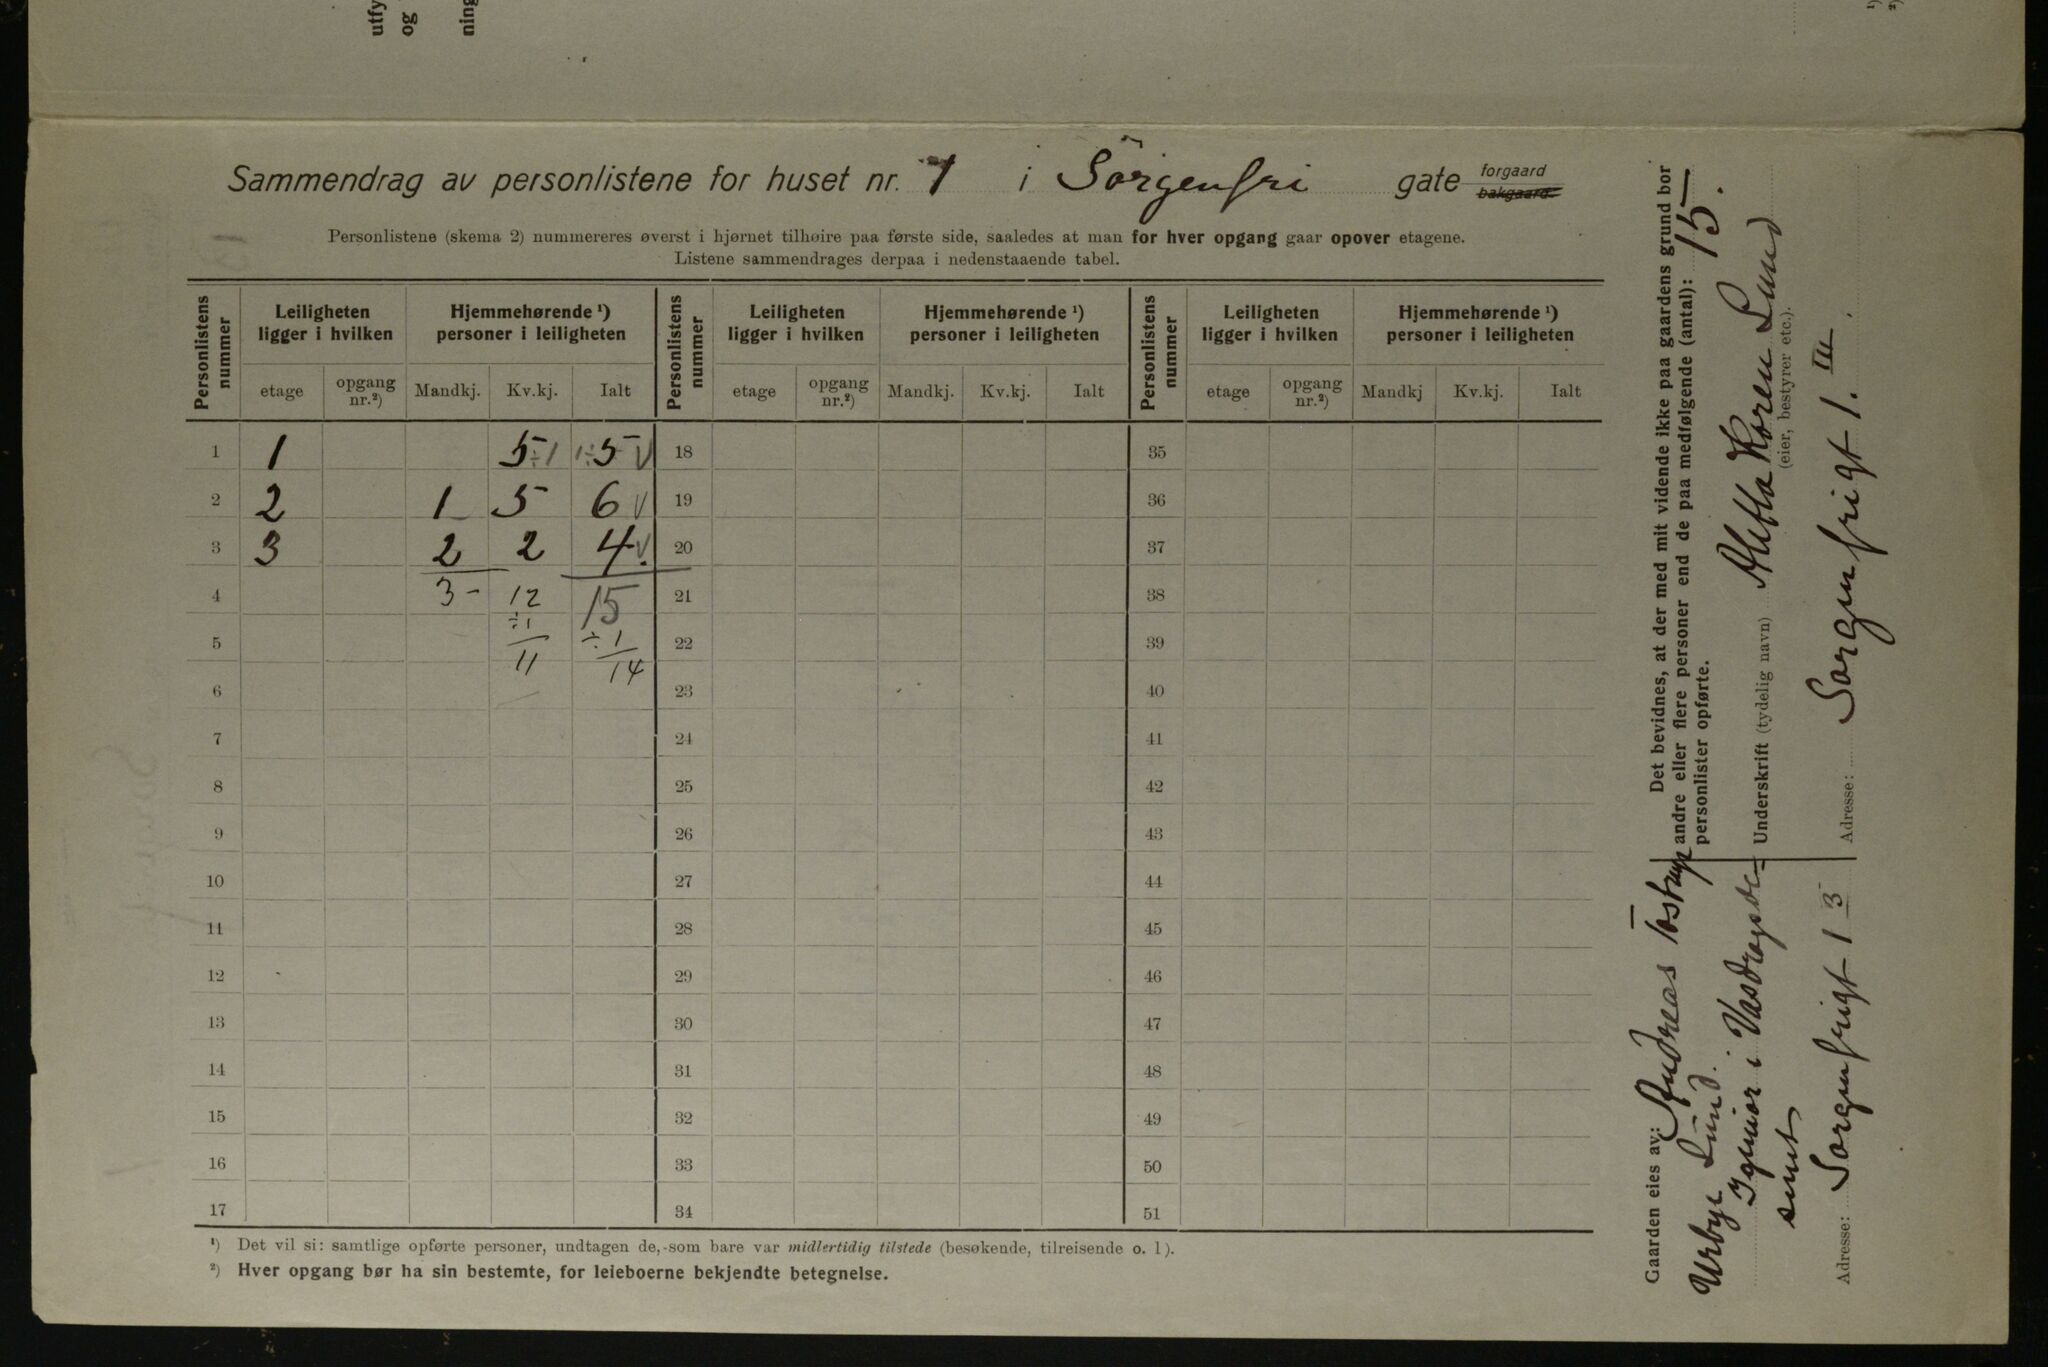 utfy
og
ning
¹)
²)
Sammendrag av personlistene for huset nr. 1 i Sörgenfri gate forgaard
bakgaard.
Personlistene (skema 2) nummereres øverst i hjørnet tilhøire paa første side, saaledes at man for hver opgang gaar opover etagene.
Listene sammendrages derpaa i nedenstaaende tabel.
Personlistens nummer | Leiligheten ligger i hvilken | Hjemmehørende ¹) personer i leiligheten | Personlistens nummer | Leiligheten ligger i hvilken | Hjemmehørende ¹) personer i leiligheten | Personlistens nummer | Leiligheten ligger i hvilken | Hjemmehørende ¹) personer i leiligheten
etage | opgang nr.²) | Mandkj. | Kv.kj. | Ialt | etage | opgang nr.²) | Mandkj. | Kv.kj. | Ialt | etage | opgang nr.²) | Mandkj | Kv.kj. | Ialt
1 1 5 ÷1 1÷ 5 V 18 35
2 2 1 5 6 V 19 36
3 3 2 2 4 V 20 37
4 3- 12 15 21 38
5 ÷1 ÷1 22 39
11 14
6 23 40
7 24 41
8 25 42
9 26 43
10 27 44
11 28 45
12 29 46
13 30 47
14 31 48
15 32 49
16 33 50
17 34 51
¹) Det vil si: samtlige opførte personer, undtagen de, som bare var midlertidig tilstede (besøkende, tilreisende o. l).
²) Hver opgang bør ha sin bestemte, for leieboerne bekjendte betegnelse.
Det bevidnes, at der med mit vidende ikke paa gaardens grund bor
andre eller flere personer end de paa medfølgende (antal): 15.
personlister opførte.
Underskrift (tydelig navn) Aletta Koren Lund
(eier, bestyrer etc.).
Adresse: Sorgenfrigt 1. III.
Gaarden eies av: Andreas Tostrup
Urbye Lund.
Igeniør i Vasdragsve-
senet
Adresse: Sorgenfrigt 1 3